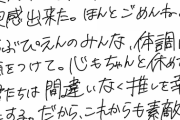 感出来た。ほんとごめんね。
ぴえんのみんな、体調
をつけて。心もちゃんと休め
たちは間違いなく推しを幸
する。だから、これからも素敵